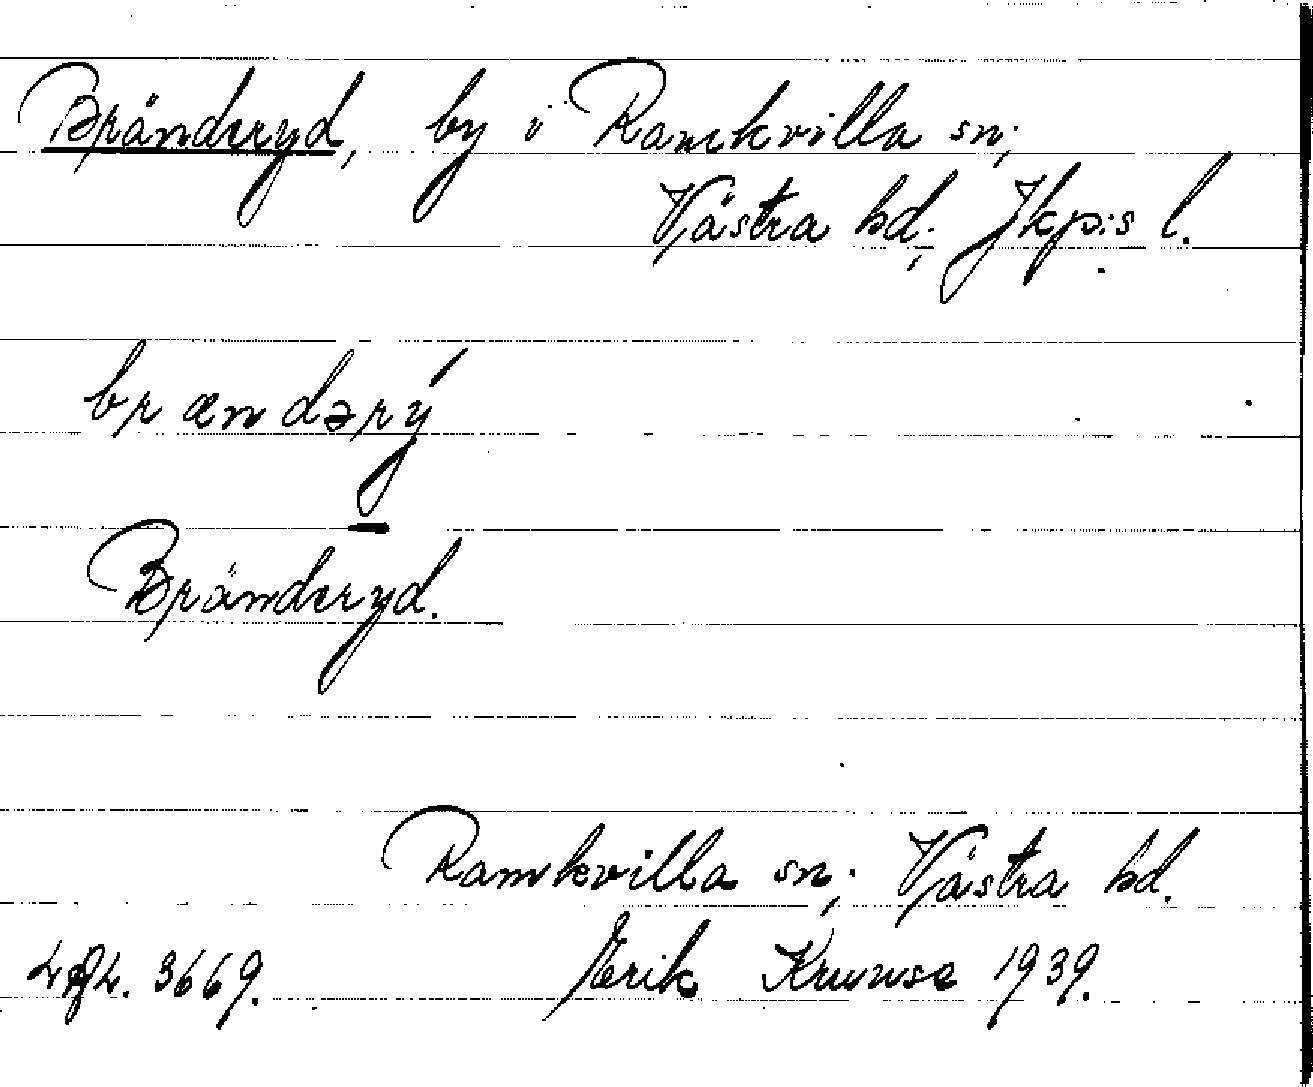 Bränderyd, by i Ramkvilla sn;
Västra hd; Jkp:s l.
brændərý
Bränderyd.
Ramkvilla sn; Västra hd.
3669. Erik Kruuse 1939.